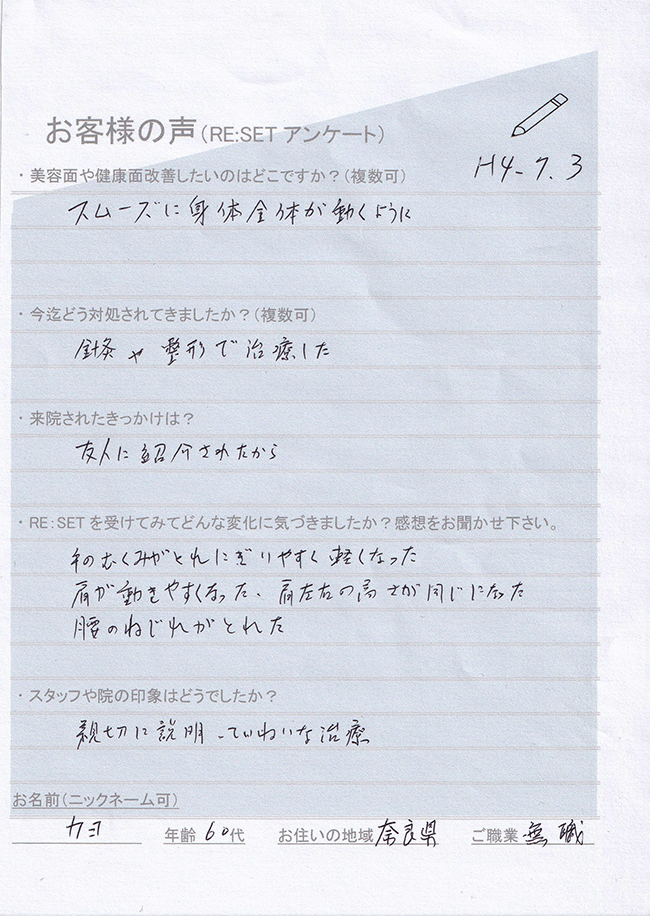 お客様の声(RE:SET アンケート)
H4-7.3
・美容面や健康面改善したいのはどこですか?(複数可)
スムーズに身体全体が動くように
・今迄どう対処されてきましたか?(複数可)
針灸や整形で治療した
・来院されたきっかけは?
友人に紹介されたから
・RE:SETを受けてみてどんな変化に気づきましたか?感想をお聞かせ下さい。
手のむくみがとれにぎりやすく軽くなった
肩が動きやすくなった、肩左右の高さが同じになった
腰のねじれがとれた
・スタッフや院の印象はどうでしたか?
親切に説明、ていねいな治療
お名前(ニックネーム可)
カヨ 年齢 60代 お住いの地域 奈良県 ご職業 無職